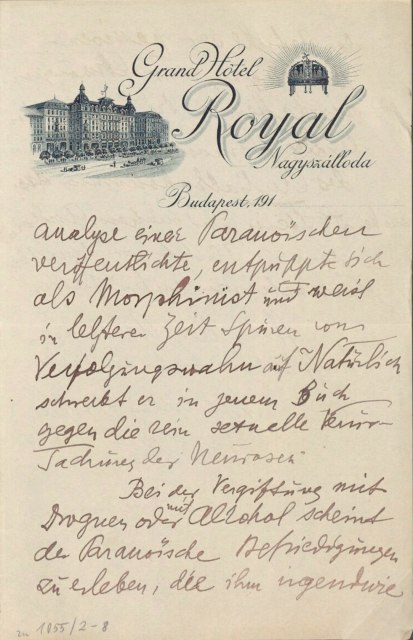 Grand Hôtel
Royal
Nagyszálloda
Budapest, 191
analyse einer Paranoïschen
veröffentlichte, entpuppte sich
als Morphinist und weist
in letzterer Zeit Spuren von
Verfolgungswahn auf Natürlich
schreibt er in jenem Buch
gegen die rein sexuelle
der Neurosen
Bei der Vergiftung mit
Droguen oder mit Alcohol scheint
der Paranoïsche Befriedigungen
zu erleben, die ihm irgendwie
1055/2-8